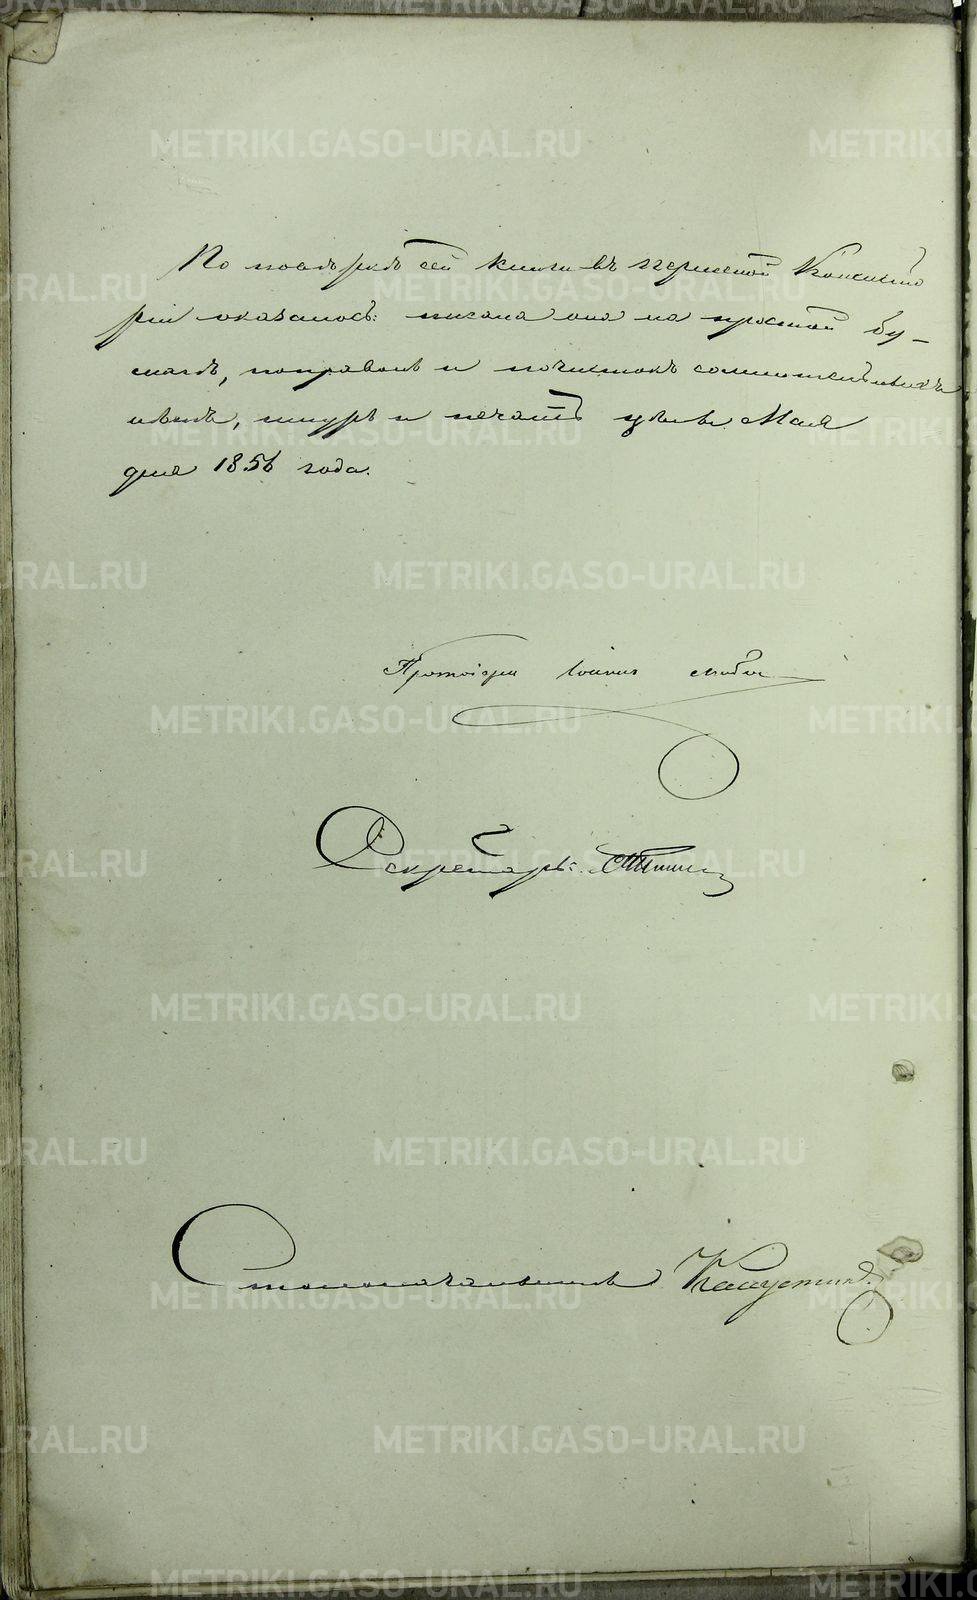 По повѣркѣ сей книги въ Пермской Консисто
ріи оказалось: писана она на простой бу-
магѣ, поправокъ и почистокъ сомнительныхъ
нѣтъ, шнуръ и печать цѣлы. Мая
дня 1856 года.
Протоіерей Іоаннъ
Секретарь:
Столоначальникъ Капустинъ
METRIKI.GASO-URAL.RU